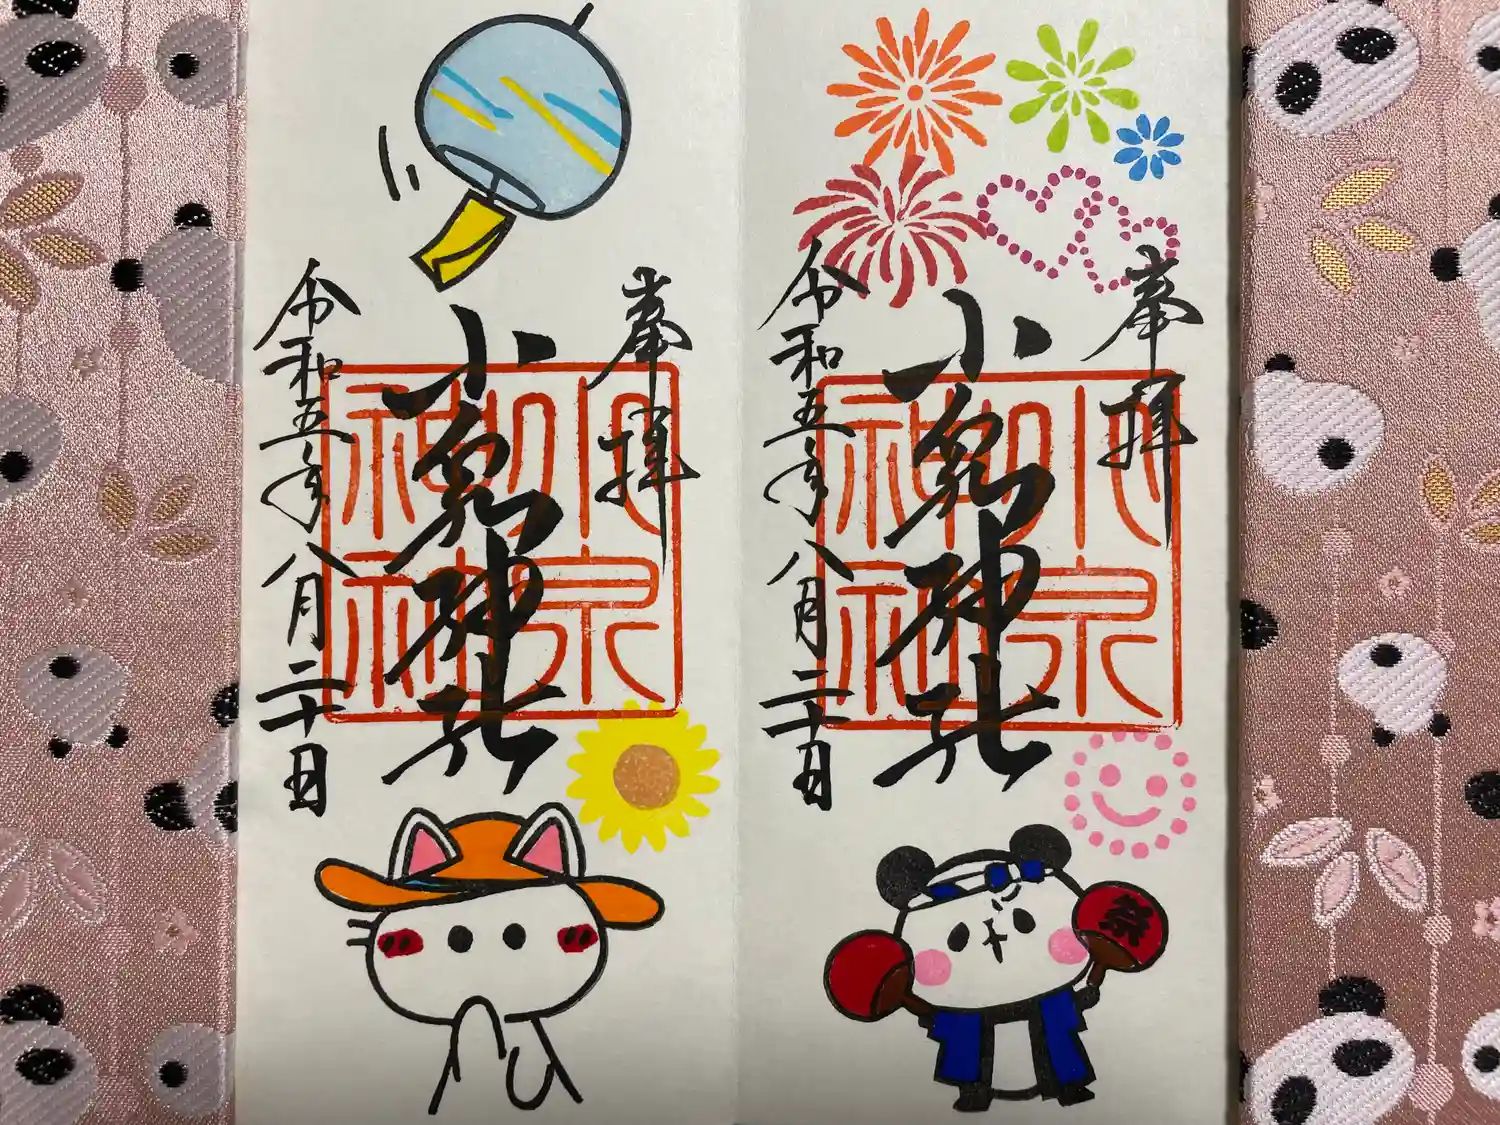 奉拝
小泉神社
小泉
神社
令和五年八月二十日
祭
奉拝
小泉神社
小泉
神社
令和五年八月二十日